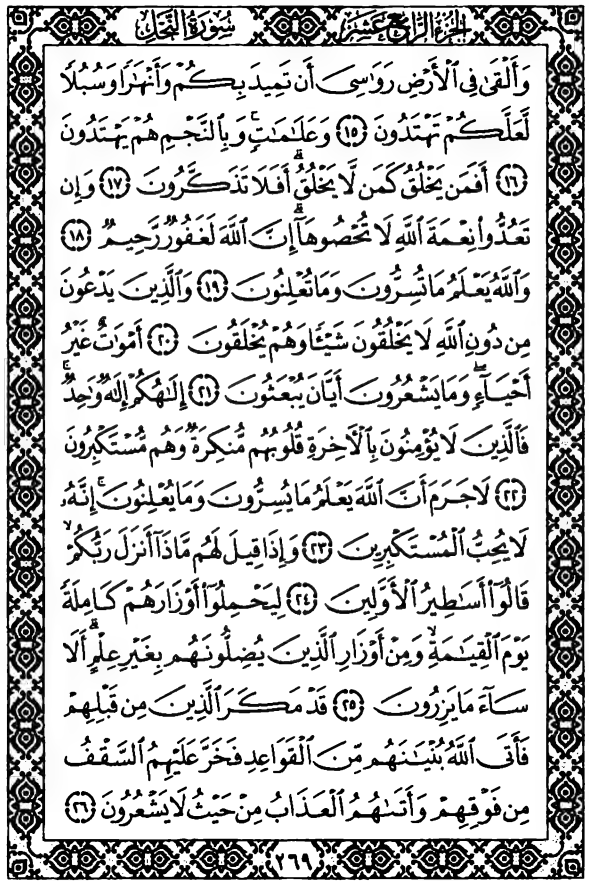 الجزء الرابع عشر سورة النحل
وَأَلْقَىٰ فِي ٱلْأَرْضِ رَوَٰسِيَ أَن تَمِيدَ بِكُمْ وَأَنْهَٰرًا وَسُبُلًا
لَّعَلَّكُمْ تَهْتَدُونَ ١٥ وَعَلَٰمَٰتٍ ۚ وَبِٱلنَّجْمِ هُمْ يَهْتَدُونَ
١٦ أَفَمَن يَخْلُقُ كَمَن لَّا يَخْلُقُ ۗ أَفَلَا تَذَكَّرُونَ ١٧ وَإِن
تَعُدُّوا۟ نِعْمَةَ ٱللَّهِ لَا تُحْصُوهَآ ۗ إِنَّ ٱللَّهَ لَغَفُورٌ رَّحِيمٌ ١٨
وَٱللَّهُ يَعْلَمُ مَا تُسِرُّونَ وَمَا تُعْلِنُونَ ١٩ وَٱلَّذِينَ يَدْعُونَ
مِن دُونِ ٱللَّهِ لَا يَخْلُقُونَ شَيْـًٔا وَهُمْ يُخْلَقُونَ ٢٠ أَمْوَٰتٌ غَيْرُ
أَحْيَآءٍ ۖ وَمَا يَشْعُرُونَ أَيَّانَ يُبْعَثُونَ ٢١ إِلَٰهُكُمْ إِلَٰهٌ وَٰحِدٌ ۚ
فَٱلَّذِينَ لَا يُؤْمِنُونَ بِٱلْءَاخِرَةِ قُلُوبُهُم مُّنكِرَةٌ وَهُم مُّسْتَكْبِرُونَ
٢٢ لَا جَرَمَ أَنَّ ٱللَّهَ يَعْلَمُ مَا يُسِرُّونَ وَمَا يُعْلِنُونَ ۚ إِنَّهُۥ
لَا يُحِبُّ ٱلْمُسْتَكْبِرِينَ ٢٣ وَإِذَا قِيلَ لَهُم مَّاذَآ أَنزَلَ رَبُّكُمْ ۙ
قَالُوٓا۟ أَسَٰطِيرُ ٱلْأَوَّلِينَ ٢٤ لِيَحْمِلُوٓا۟ أَوْزَارَهُمْ كَامِلَةً
يَوْمَ ٱلْقِيَٰمَةِ ۙ وَمِنْ أَوْزَارِ ٱلَّذِينَ يُضِلُّونَهُم بِغَيْرِ عِلْمٍ ۗ أَلَا
سَآءَ مَا يَزِرُونَ ٢٥ قَدْ مَكَرَ ٱلَّذِينَ مِن قَبْلِهِمْ
فَأَتَى ٱللَّهُ بُنْيَٰنَهُم مِّنَ ٱلْقَوَاعِدِ فَخَرَّ عَلَيْهِمُ ٱلسَّقْفُ
مِن فَوْقِهِمْ وَأَتَىٰهُمُ ٱلْعَذَابُ مِنْ حَيْثُ لَا يَشْعُرُونَ ٢٦
٢٦٩